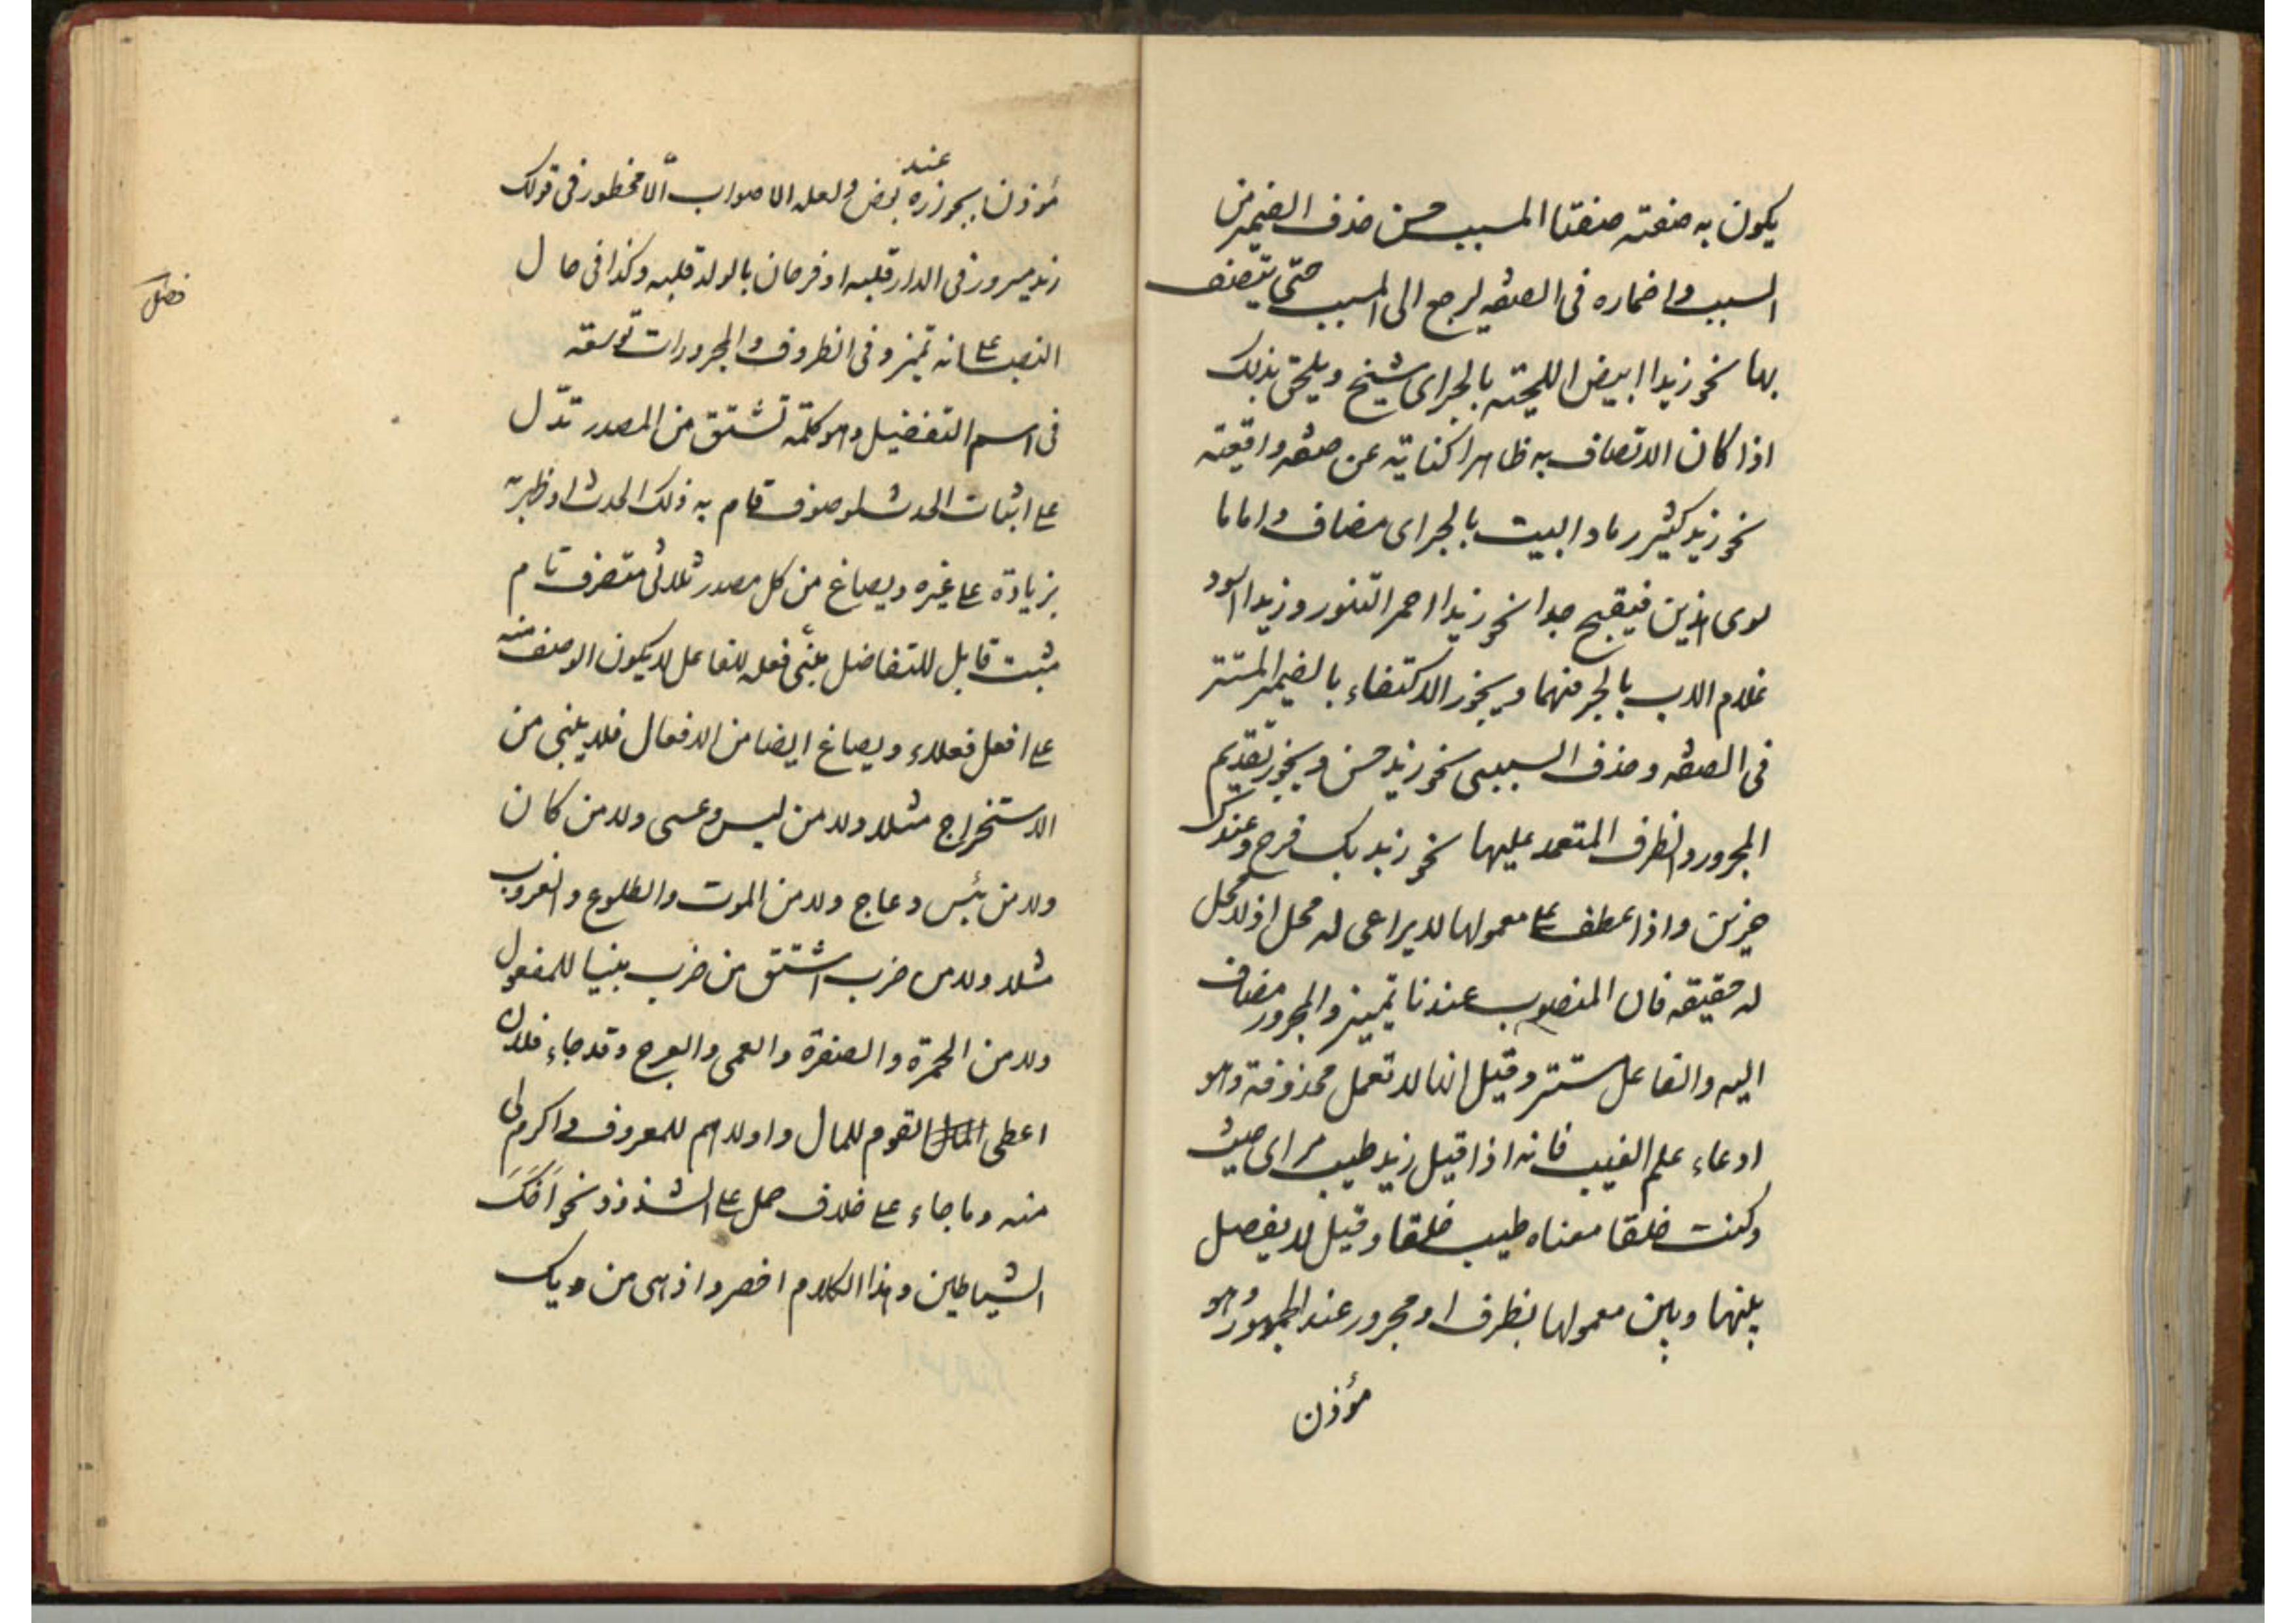 يكون به صفته صفتا المسبب حسن حذف الضمير من
السبب واضماره فى الصفه ليرجع الى المسبب حتى يتصف
بها نحو زيدا ابيض اللحيته بالجر اى شيخ ويلحق بذلك
اذا كان الاتصاف به ظاهرا كناية عن صفه واقعته
نحو زيد كثير رماد البيت بالجر اى مضاف واماما
سوى اذين فيقبح جدا نحو زيدا احمر التنور وزيدا اسود
غلام الاب بالجر منهما ويجوز الاكتفاء بالضمير المستتر
فى الصفه وحذف السببى نحو زيد حسن ويجوز تقديم
المجرور والظرف المتعمد عليها نحو زيد بك فرح وعندك
حزين واذا عطف على معمولها لا يراعى له محل اذ لا محل
له حقيقه فان المنصوب عندنا تميز والمجرور مضاف
اليه والفاعل مستتر وقيل انها لا تعمل محذوفة وهو
ادعاء علم الغيب فانه اذا قيل زيد طيب مر اى حيث
وكنت خلقا معناه طيب خلقا وقيل لا يفصل
بينها وبين معمولها بظرف او مجرور عند الجمهور وهو
مؤذن
مؤذن بجوازه عند بعض ولعله الاصواب الا محظور فى قولك
زيد مسرور فى الدار قلبه او فرحان بالولد قلبه وكذا فى حال
النصب على انه تميز وفى الظروف والمجرورات توسعة
فصل
فى اسم التفضيل وهو كلمة تشتق من المصدر تدّل
على اثبات الحدث لموصوف قام به ذلك الحدث او ظهر به
بزيادة على غيره ويصاغ من كل مصدر ثلاثى متصرف تام
مثبت قابل للتفاضل بنى فعله للفاعل لا يكون الوصف منه
على افعل فعلاء ويصاغ ايضا من الافعال فلا يبنى من
الاستخراج مثلا ولا من ليس وعسى ولا من كان
ولا من بئس وعاج ولا من الموت والطلوع والغروب
مثلا ولا من ضرب اشتق من ضرب بنيا للمفعول
ولا من الحمرة والصفرة والعمى والعرج وقد جاء فلان
اعطى القوم للمال واولاهم للمعروف واكرم لى
منه وما جاء على خلاف حمل على الشذوذ نحو افكك
الشياطين وهذا الكلام اخصر واذهى من ديك